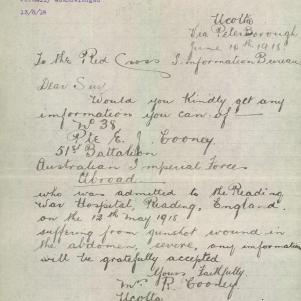 acknowledged
13/8/18
Ucolta
Via Peterborough
June 14th 1918
To the Red Cross Information Bureau
Dear Sir
Would you kindly get any
information you can of
No 38
Pte E. J. Cooney
51st Battalion
Australian Imperial Force
Abroad
who was admitted to the Reading
War Hospital, Reading, England.
on the 12th May 1918
suffering from gunshot wound in
the abdomen, severe, any information
will be gratefully accepted
Yours faithfully
Mrs R Cooney
Ucolta